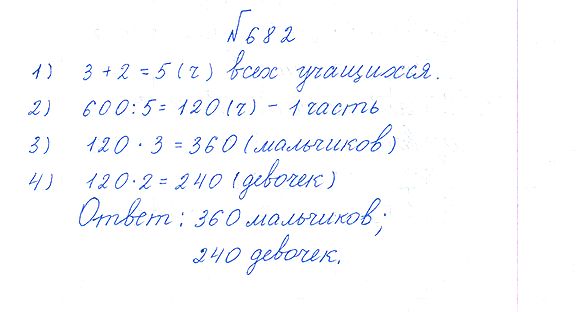 №682
1) 3+2=5(ч) всех учащихся.
2) 600:5=120(ч) - 1 часть
3) 120·3=360(мальчиков)
4) 120·2=240(девочек)
Ответ: 360 мальчиков;
240 девочек.